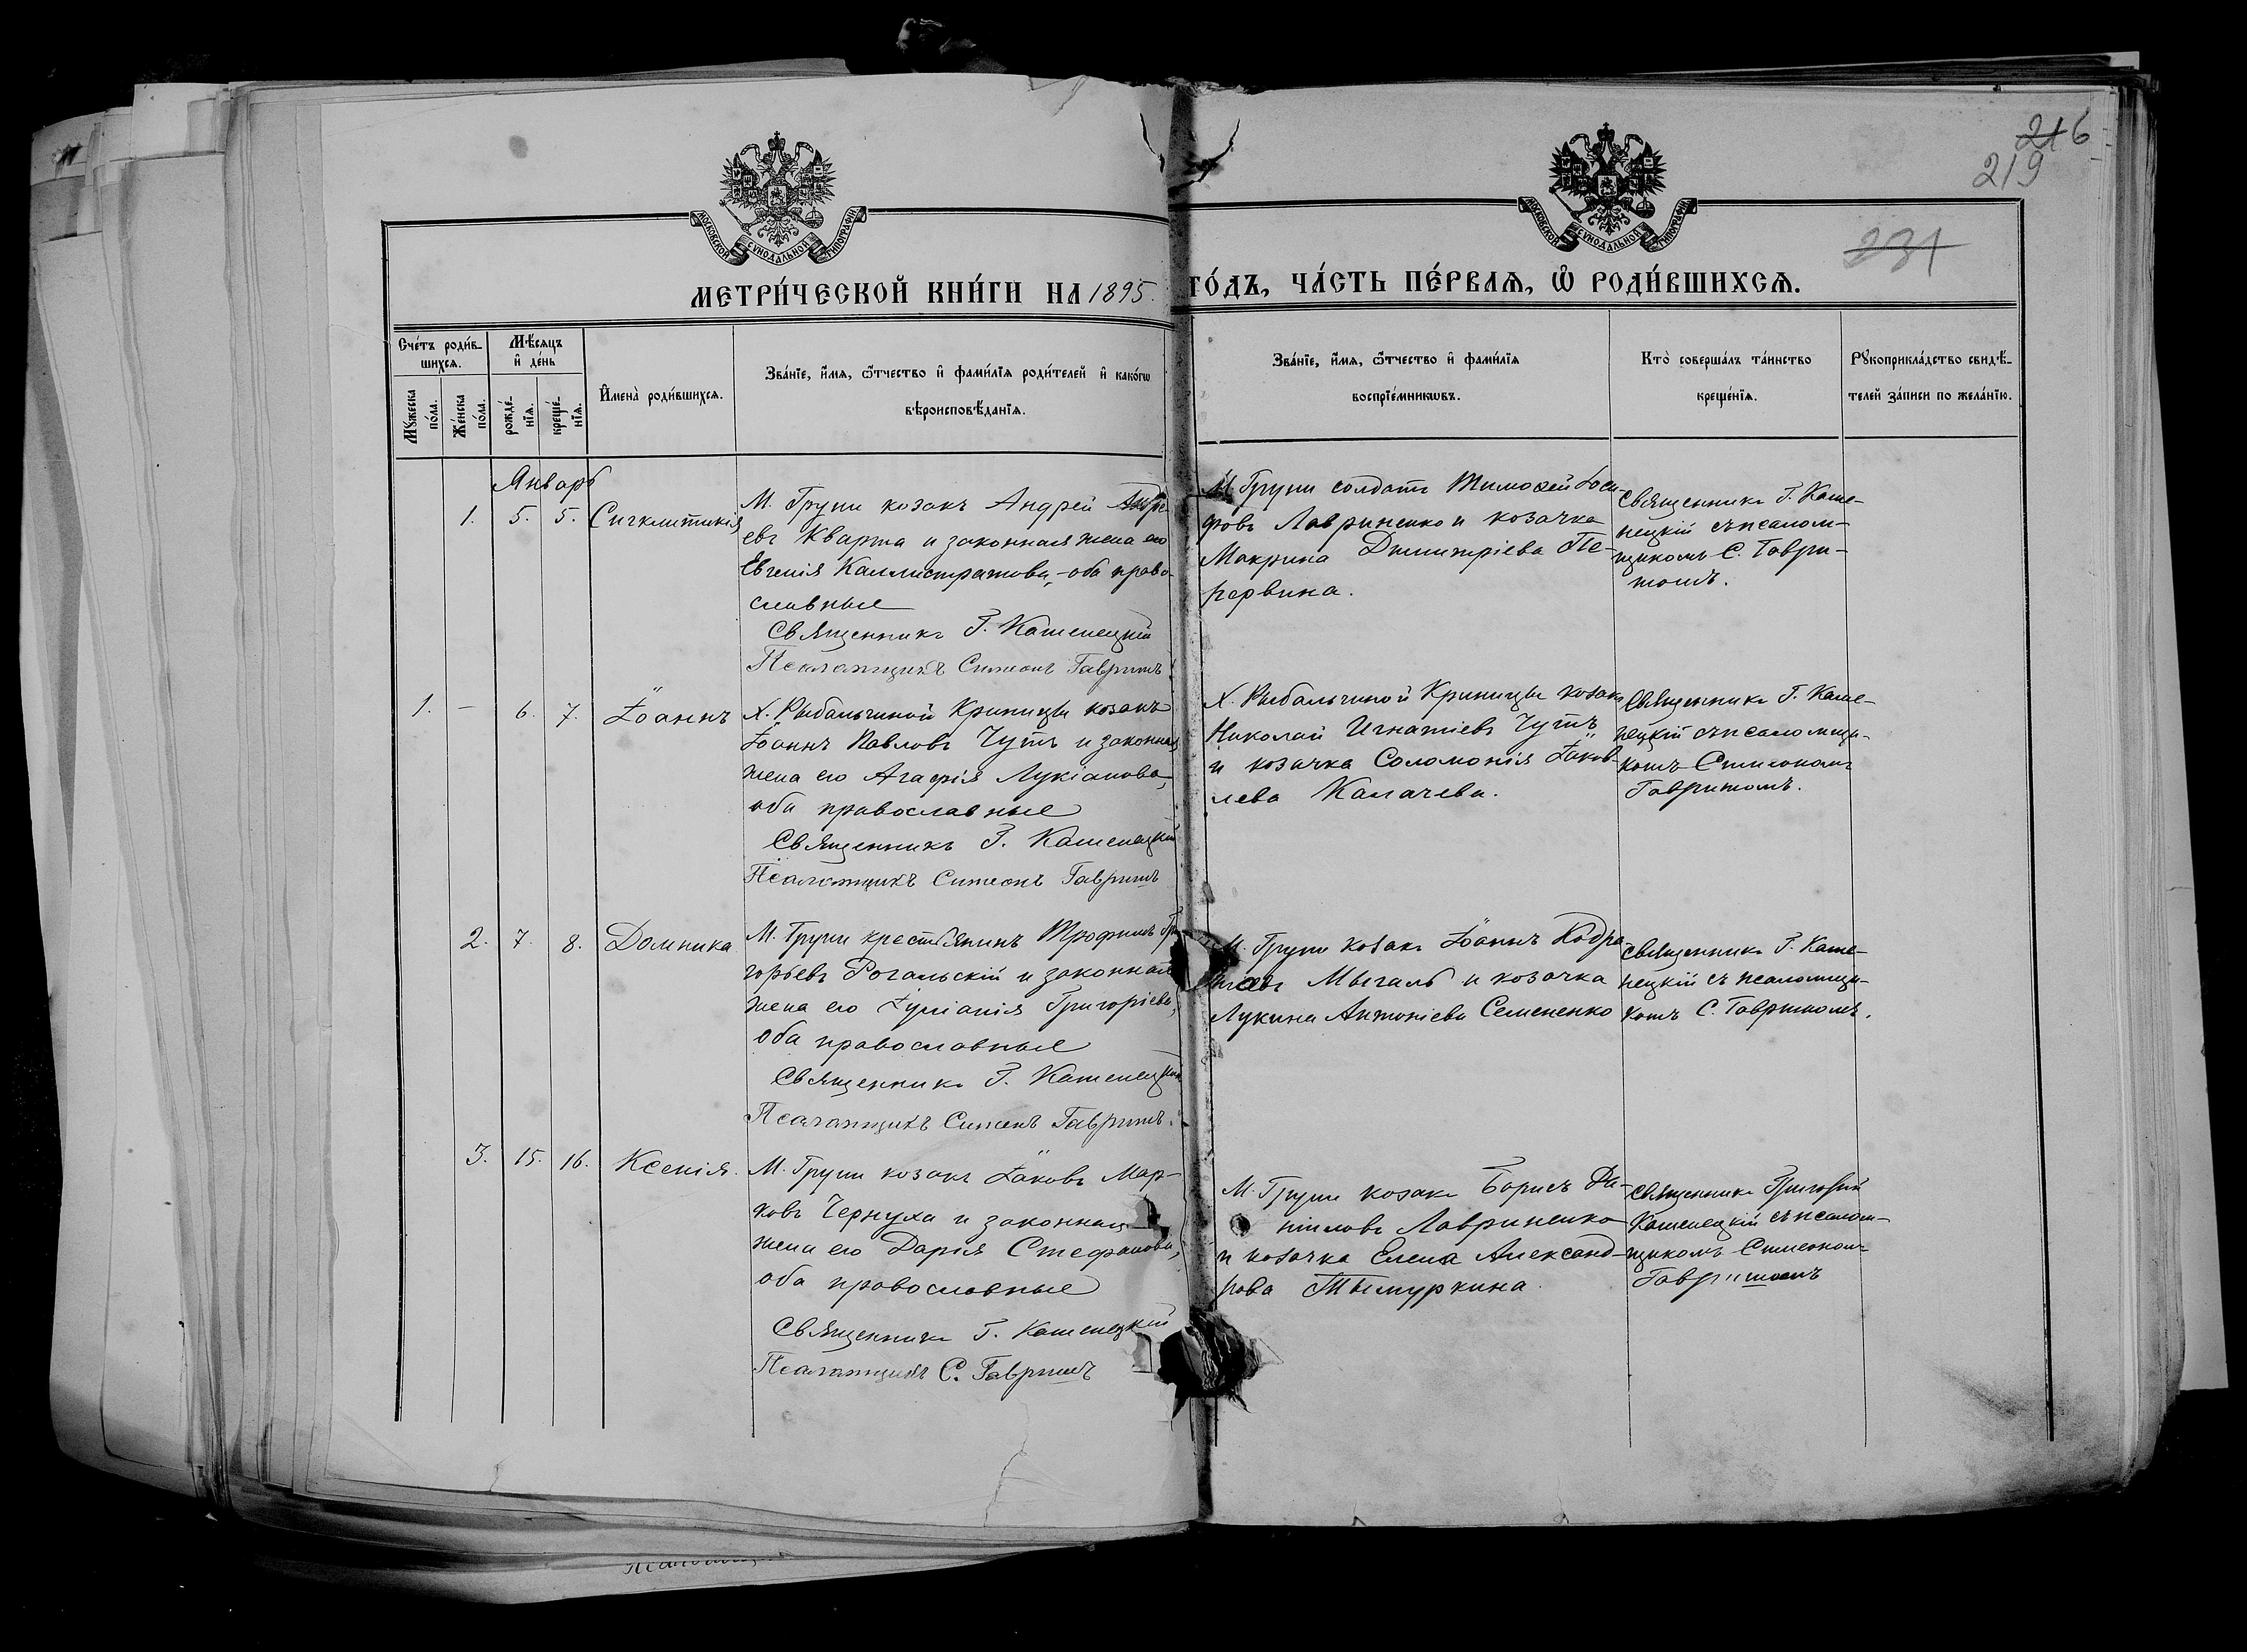 216
219
231
МОСКОВСКОЙ СУНОДАЛЬНОЙ ТИПОГРАФІИ
МОСКОВСКОЙ СУНОДАЛЬНОЙ ТИПОГРАФІИ
МЕТРИ́ЧЕСКОЙ КНИ́ГИ НА 1895. ГО́ДЪ, ЧА́СТЬ ПЕ́РВАѦ, Ѽ РОДИ́ВШИХСѦ.
Сче́тъ роди́в-
шихсѧ.
Мѣ́сѧцъ
и҆ де́нь
Мꙋ́жеска
по́ла.
Же́нска
по́ла.
рожде́-
нїѧ.
креще́-
нїѧ.
И҆мена̀ роди́вшихсѧ.
Зва́нїе, и҆́мѧ, ѻ҆́тчество и҆ фами́лїѧ роди́телей и҆ како́гѡ
вѣроисповѣ́данїѧ.
Зва́нїе, и҆́мѧ, ѻ҆́тчество и҆ фами́лїѧ
воспрїе́мникѡвъ.
Кто̀ соверша́лъ та́инство
креще́нїѧ.
Рꙋкоприкла́дство свидѣ́-
телей за́писи по жела́нїю.
Январь
1. 5. 5. Сигклитикія
М. Груни козакъ Андрей Андре-
евъ Кварта и законная жена его
Евгенія Каллистратова, - оба право-
славные
Священникъ Г. Каменецкій
Псаломщикъ Симеонъ Гавришъ
М. Груни солдатъ Тимофей Іоси-
фовъ Лавриненко и козачка
Макрина Димитріева Пе-
рервина.
Священникъ Г. Каме-
нецкій съ псалом-
щикомъ С. Гаври-
шомъ.
1. - 6. 7. Іоаннъ
Х. Рыбальчиной Криницы козакъ
Іоаннъ Павловъ Чутъ и законная
жена его Агафія Лукіанова,
оба православные
Священникъ Г. Каменецкій
Псаломщикъ Симеонъ Гавришъ
Х. Рыбальчиной Криницы козакъ
Николай Игнатіевъ Чутъ
и козачка Соломонія Іаков-
лева Калачева.
Священникъ Г. Каме-
нецкій съ псаломщи-
комъ Симеономъ
Гавришомъ.
2. 7. 8. Домника
М. Груни крестьянинъ Трофимъ Гри-
горьевъ Рогальскій и законная
жена его Іуліанія Григоріева,
оба православные
Священникъ Г. Каменецкій
Псаломщикъ Симеонъ Гавришъ.
М. Груни козакъ Іоаннъ Кодра-
тіевъ Мыгаль и козачка
Лукина Антоніева Семененко
Священникъ Г. Каме-
нецкій съ псаломщи-
комъ С. Гавришомъ.
3. 15. 16. Ксенія.
М. Груни козакъ Іаковъ Мар-
ковъ Чернуха и законная
жена его Дарія Стефанова,
оба православные
Священникъ Г. Каменецкій
Псаломщикъ С. Гавришъ
М. Груни козакъ Борисъ Да-
ніиловъ Лавриненко
и козачка Елена Александ-
рова Тымуркина.
Священникъ Григорій
Каменецкій съ псалом-
щикомъ Симеономъ
Гавришомъ